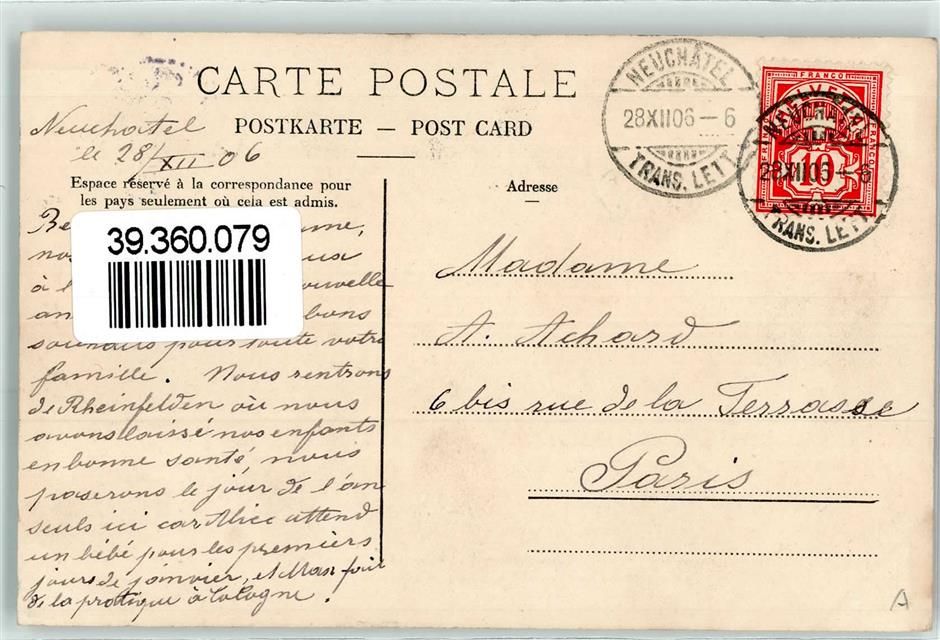 CARTE POSTALE
POSTKARTE — POST CARD
Neuchatel
le 28/XII 06
Espace réservé à la correspondance pour
les pays seulement où cela est admis.
39.360.079
à l'
nouvelle
an bons
souhaits pour toute votre
famille. Nous rentrons
de Rheinfelden où nous
avons laissé nos enfants
en bonne santé, nous
passerons le jour de l'an
seuls ici car Alice attend
un bébé pour les premiers
jours de janvier, et Max fait
de la pratique à Cologne.
Adresse
Madame
A. Achard
6 bis rue de la Terrasse
Paris
NEUCHÂTEL
28XII06 – 6
TRANS. LETT
FRANCO
HELVETIA
FRANCO
FRANCO
10
NEUCHÂTEL
28XII06 – 6
TRANS. LETT
A